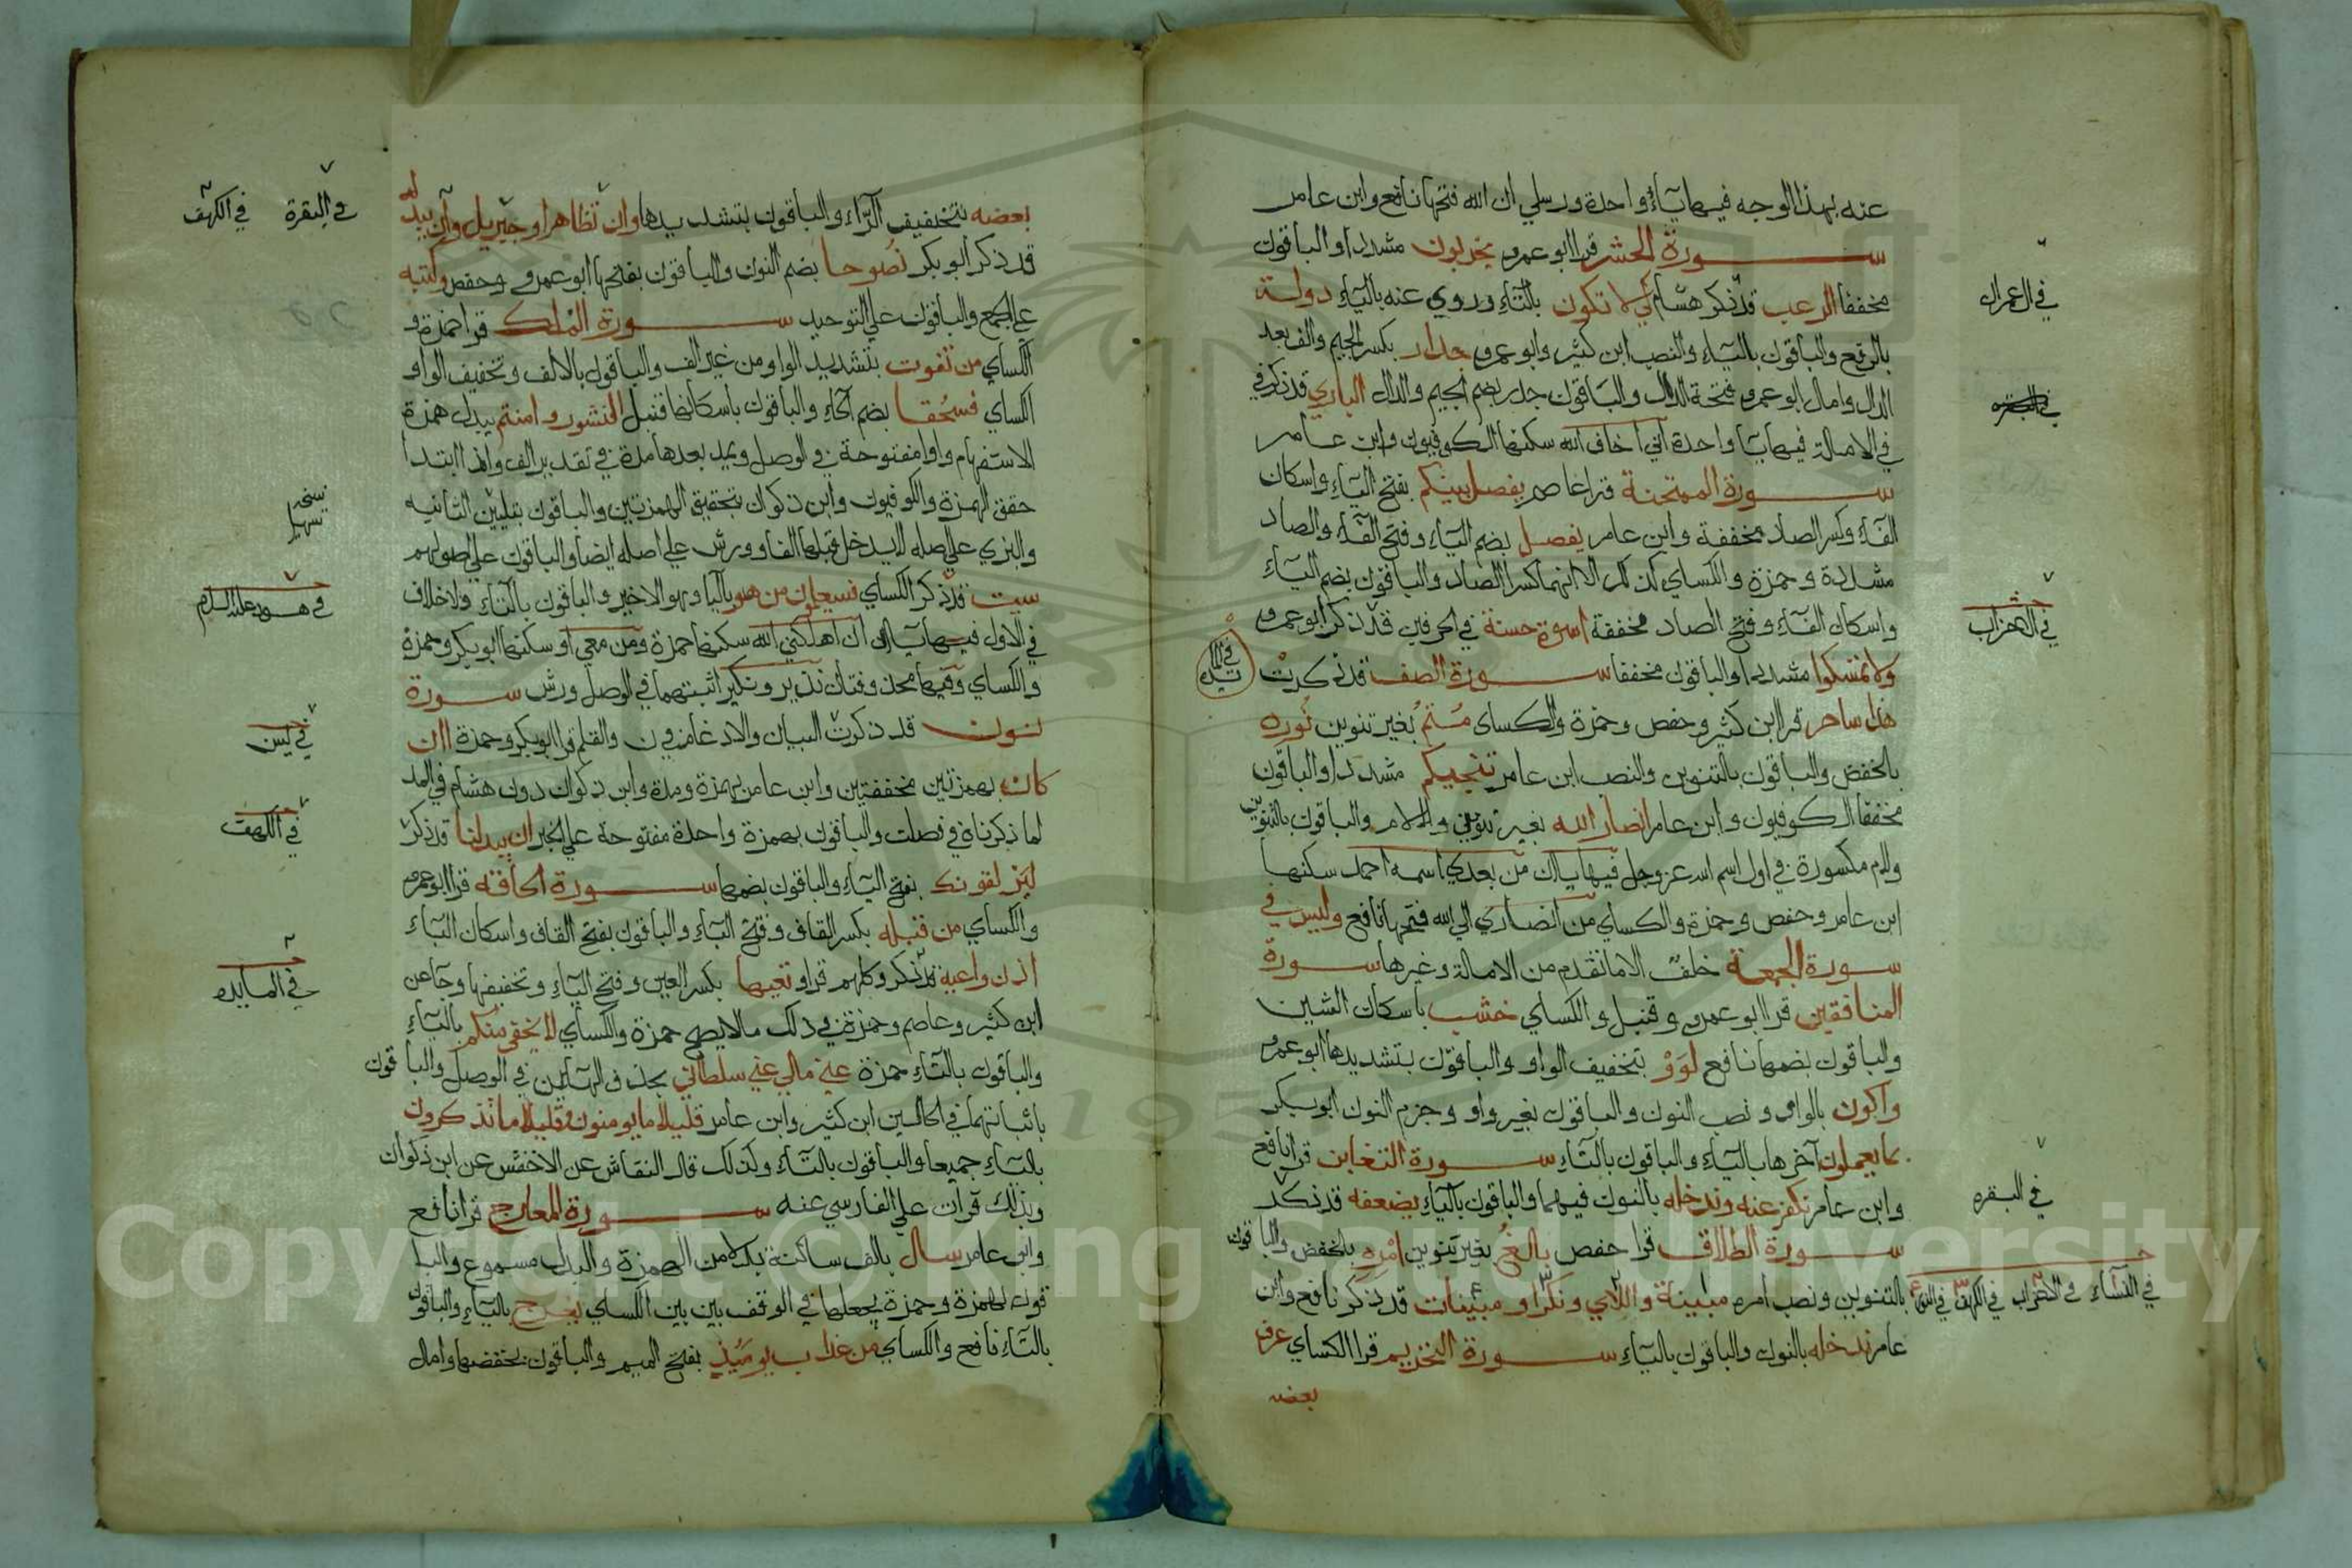 عنه بهذا الوجه فيها ياء واحدة ورسلي ان الله فتحها نافع وابن عامر
سورة الحشر قرا ابو عمرو يخربون مشددا والباقون
مخففا الرعب قد ذكر هشام كي لا تكون بالتاء وروي عنه بالياء دولة
بالرفع والباقون بالياء والنصب ابن كثير وابو عمرو جدار بكسر الجيم والف بعد
الدال وامال ابو عمرو فتحة الدال والباقون جدر بضم الجيم والدال الباري قد ذكر في
في الامالة فيها يا واحدة اني اخاف الله سكنها الكوفيون وابن عامر
سورة الممتحنة قرا عاصم يفصل بينكم بفتح الياء واسكان
الفاء وكسر الصاد مخففة وابن عامر يفصل بضم الياء وفتح الفاء والصاد
مشددة وحمزة والكساي كذلك الا انهما كسرا الصاد والباقون بضم الياء
واسكان الفاء وفتح الصاد مخففة اسوة حسنة في الحرفين قد ذكر ابو عمرو
ولا تمسكوا مشددا والباقون مخففا سورة الصف قد ذكرت
هذا ساحر قرا ابن كثير وحفص وحمزة والكساى متم بغير تنوين نوره
بالخفض والباقون بالتنوين والنصب ابن عامر تنجيكم مشددا والباقون
مخففا الكوفيون وابن عامر انصار الله بغير تنوين ولا لام والباقون بالتنوين
ولام مكسورة في اول اسم الله عز وجل فيها ياان من بعدي اسمه احمد سكنها
ابن عامر وحفص وحمزة والكساي من انصاري الى الله فتحها نافع وليس في
سورة الجمعة خلف الا ما تقدم من الامالة وغيرها سورة
المنافقين قرا ابو عمرو وقنبل والكساي خشب باسكان الشين
والباقون بضمها نافع لووا بتخفيف الواو والباقون بتشديدها ابو عمرو
واكون بالواو ونصب النون والباقون بغير واو وجزم النون ابو بكر
بما يعملون آخرها بالياء والباقون بالتاء سورة التغابن قرا نافع
وابن عامر نكفر عنه وندخله بالنون فيهما والباقون بالياء يضعفه قد ذكر
سورة الطلاق قرا حفص بالغ بغير تنوين امره بالخفض والباقون
بالتنوين ونصب امره مبينة واللاي ونكرا ومبينات قد ذكر نافع وابن
عامر ندخله بالنون والباقون بالياء سورة التحريم قرا الكساي عرف
بعضه
في ال عمران
في الاحزاب
في البقره
في النساء في الاحزاب في الكهف في النور
بعضه بتخفيف الراء والباقون بتشديدها وان تظاهرا وجبريل وان يبدله
قد ذكر ابو بكر نصوحا بضم النون والباقون بفتحها ابو عمرو وحفص وكتبه
على الجمع والباقون على التوحيد سورة الملك قرا حمزة و
الكساي من تفوت بتشديد الواو من غير الف والباقون بالالف وتخفيف الواو
الكساي فسحقا بضم الحاء والباقون باسكانها قنبل النشور وامنتم يبدل همزة
الاستفهام واوا مفتوحة في الوصل ويمد بعدها مدة في تقدير الف واذا ابتدا
حقق الهمزة والكوفيون وابن ذكوان بتحقيق الهمزتين والباقون بتليين الثانيه
والبزي على اصله لا يدخل قبلها الفا وورش على اصله ايضا والباقون على اصولهم
سيت قد ذكر الكساي فسيعلمون من هو باليا وهو الاخير والباقون بالتاء ولا خلاف
في الاول فيها ياان ان اهلكني الله سكنها حمزة ومن معي او سكنها ابو بكر وحمزة
والكساي وفيها محذوفتان نذير ونكير اثبتهما في الوصل ورش سورة
نون قد ذكرت البيان والادغام في ن والقلم قرا ابو بكر وحمزة اان
كان بهمزتين مخففتين وابن عامر بهمزة ومدة وابن ذكوان دون هشام في المد
لما ذكرناه في فصلت والباقون بهمزة واحدة مفتوحة على الخبر ان يبدلنا قد ذكر
ليزلقونك بفتح الياء والباقون بضمها سورة الحاقة قرا ابو عمرو
والكساي من قبله بكسر القاف وفتح الباء والباقون بفتح القاف واسكان الباء
اذن واعية قد ذكر وكلهم قراو تعيها بكسر العين وفتح الياء وتخفيفها وجا عن
ابن كثير وعاصم وحمزة في ذلك مالا يصح حمزة والكساي لا يخفى منكم بالياء
والباقون بالتاء حمزة عني مالي عني سلطاني بحذف الهاءين في الوصل والباقون
باثباتهما في الحالين ابن كثير وابن عامر قليلا ما يومنون وقليلا ما تذكرون
بالياء جميعا والباقون بالتاء وكذلك قال النقاش عن الاخفش عن ابن ذكوان
وبذلك قرات على الفارسي عنه سورة المعارج قرا نافع
وابن عامر سال بالف ساكنة بدلا من الهمزة والبدل مسموع والبا
قون بهمزة وحمزة يجعلها في الوقف بين بين الكساي يعرج بالياء والباقون
بالتاء نافع والكساي من عذاب يومئذ بفتح الميم والباقون بخفضها وامال
في البقرة في الكهف
نسخه
تسهيل
في هود عليه السلام
في يس
في الكهف
في المايده
Copyright © King Saud University
1957